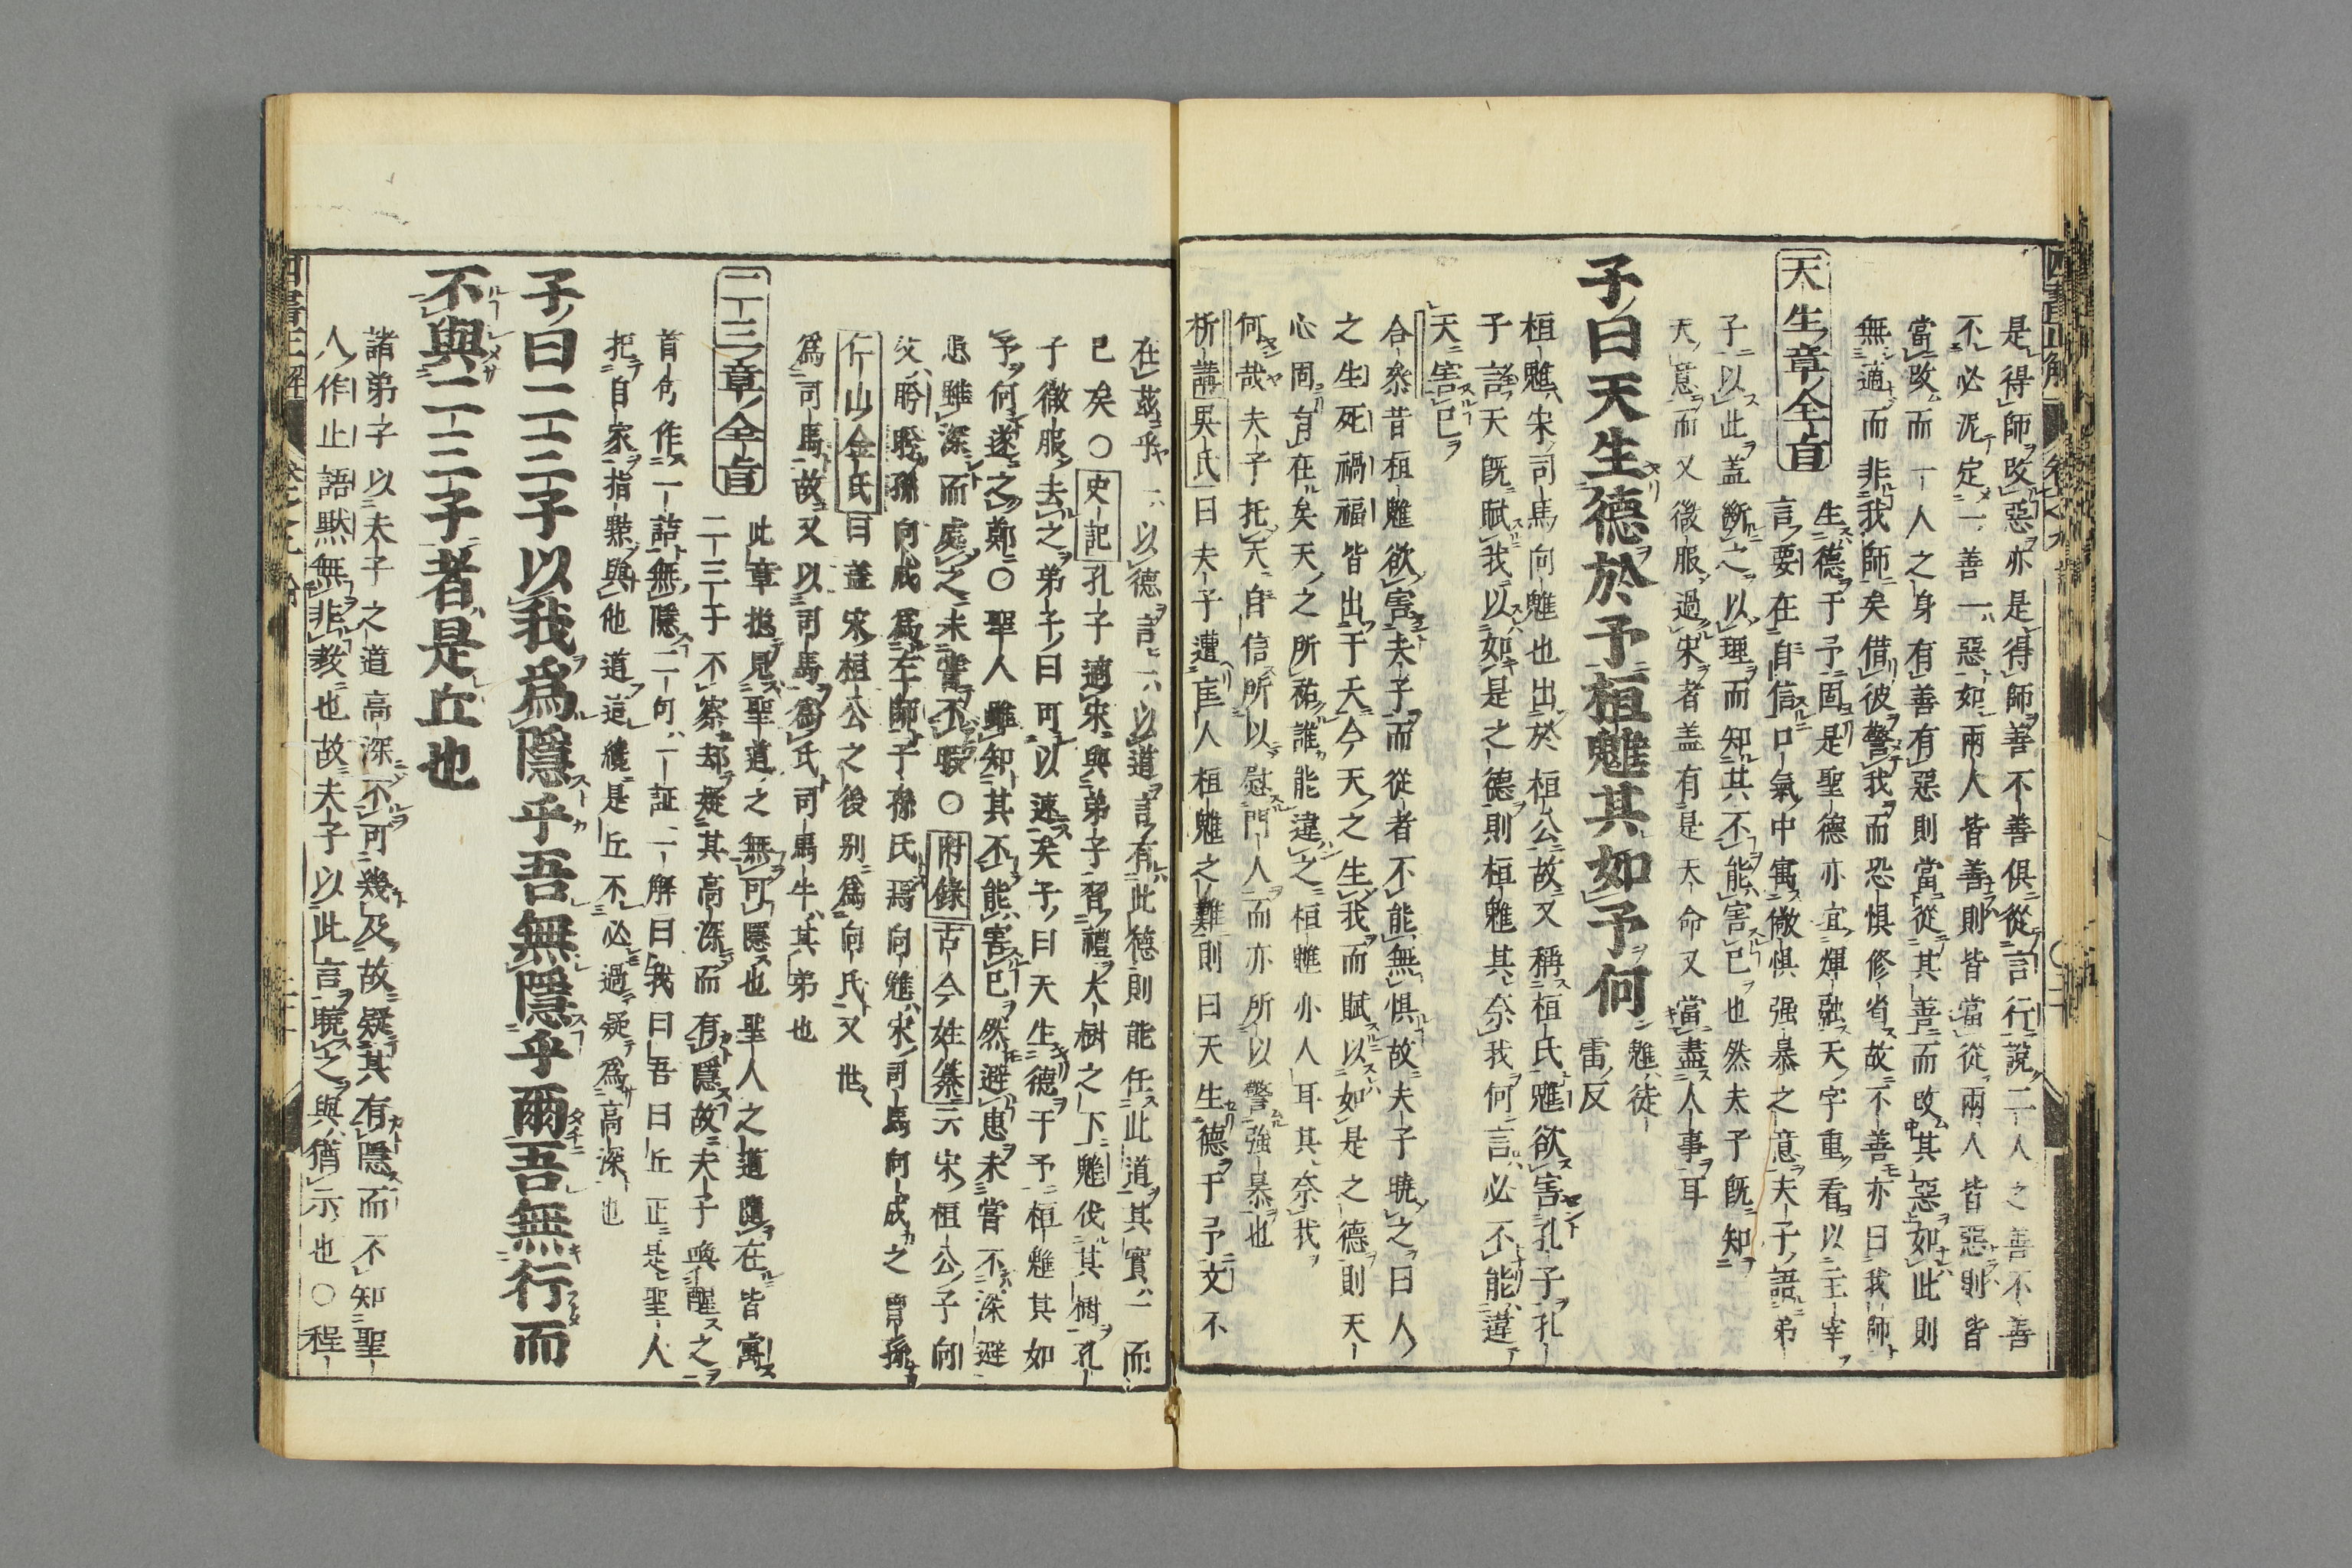 是得師改惡亦是得師善不善俱從言行說二人之善不善
不必泥定一善一惡如兩人皆善則皆當從兩人皆惡則皆
當改而一人之身有善有惡則當從其善而改其惡如此則
無適而非我師矣借彼警我而恐惧修省故不善亦曰我師
天生章全旨
生德于予固是聖德亦宜煇融天字重看以主宰
言要在自信口氣中寓儆惧强暴之意夫子語弟
子以此蓋斷之以理而知其不能害已也然夫子既知
天意而又微服過宋者盖有是天命又當盡人事耳
子曰天生德於予桓魋其如予何
魋徒
雷反
桓魋宋司馬向魋也出於桓公故又稱桓氏魋欲害孔子孔
子言天既賦我以如是之德則桓魋其奈我何言必不能違
天害已
合參昔桓魋欲害夫子而從者不能無惧故夫子曉之曰人
之生死禍福皆出于天今天之生我而賦以如是之德則天
心固有在矣天之所祐誰能違之桓魋亦人耳其奈我
何哉夫子托天自信所以慰門人而亦所以警強暴也
析講吳氏曰夫子遭匡人桓魋之難則曰天生德于予文不
在茲乎一以德言一以道言有此德則能任此道其實一而
已矣○史記孔子適宋與弟子習禮大樹之下魋伐其樹孔
子微服去之弟子曰可以速矣子曰天生德于予桓魋其如
予何遂之鄭○聖人雖知其不能害已然避患未嘗不深避
患雖深而處之未嘗不暇○附錄古今姓纂云宋桓公子向
父肹肹孫向戌爲左師子孫氏焉向魋宋司馬向戌之曾孫
仁山金氏曰蓋宋桓公之後别爲向氏又世
爲司馬故又以司馬爲氏司馬牛其弟也
二三章全旨
此章揔見聖道之無可隱也聖人之道隨在皆寓
二三子不察却疑其高深而有隱故夫子喚醒之
首句作一詰無隱二句一証一解曰我曰吾曰丘正是聖人
把自家指點與他道這纔是丘不必過疑爲高深也
子曰二三子以我爲隱乎吾無隱乎爾吾無行而
不與二三子者是丘也
諸弟子以夫子之道高深不可幾及故疑其有隱而不知聖
人作止語默無非教也故夫子以此言曉之與猶示也○程